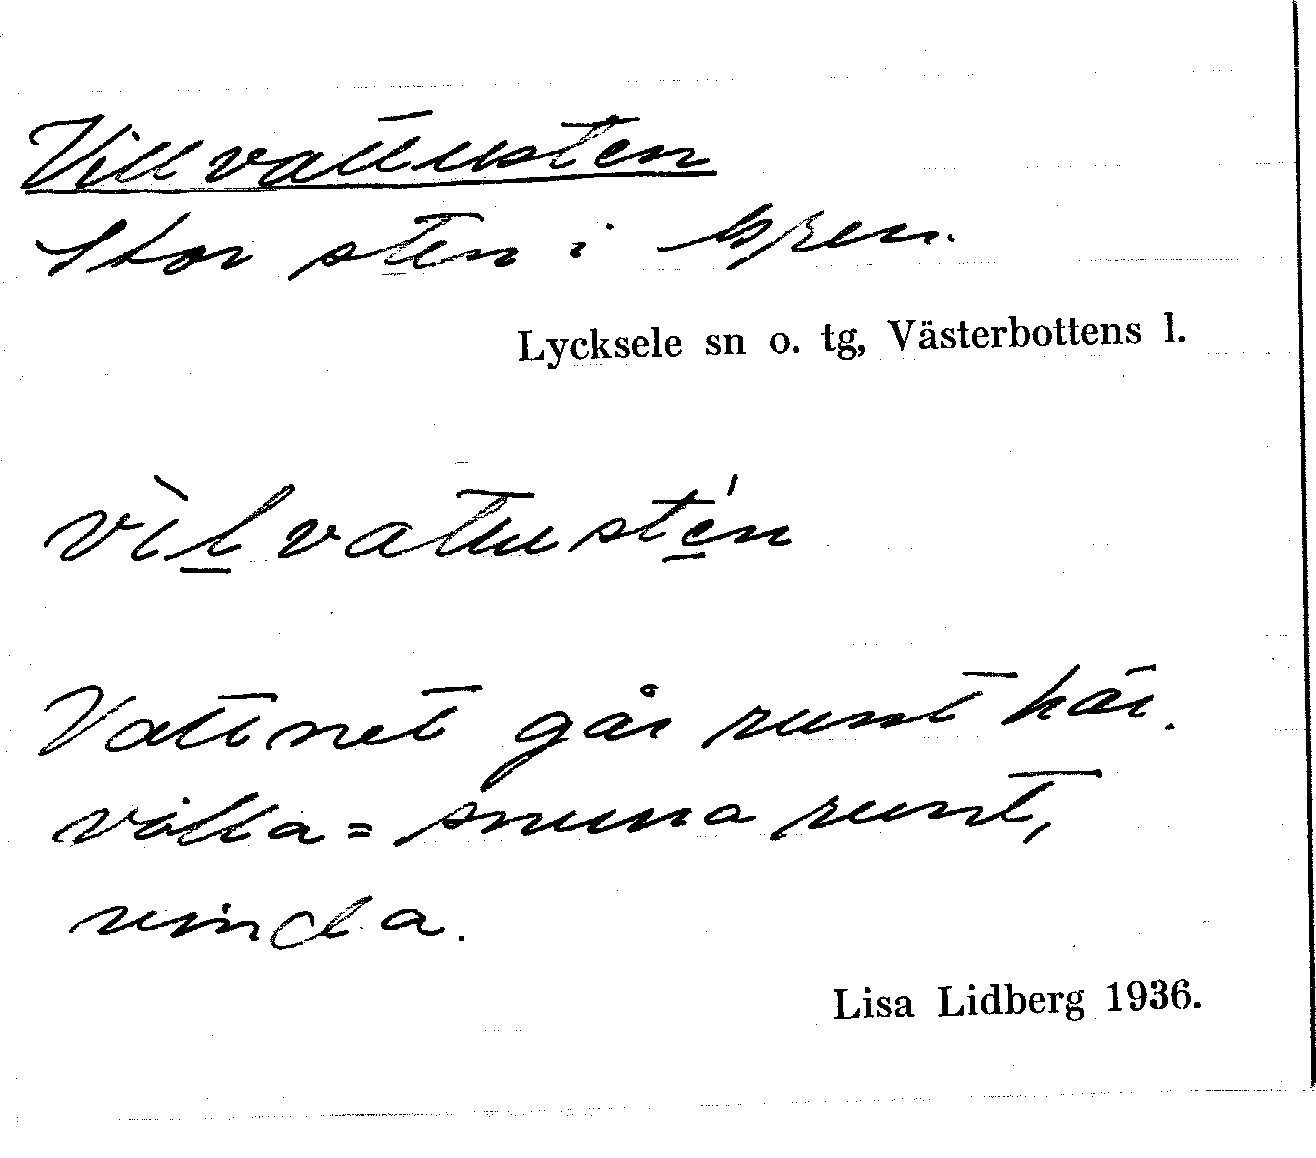 Villvattusten
Stor sten i
Lycksele sn o. tg, Västerbottens l.
vìlvattustén
Vattnet går runt här.
villa = snurra runt,
vinda.
Lisa Lidberg 1936.